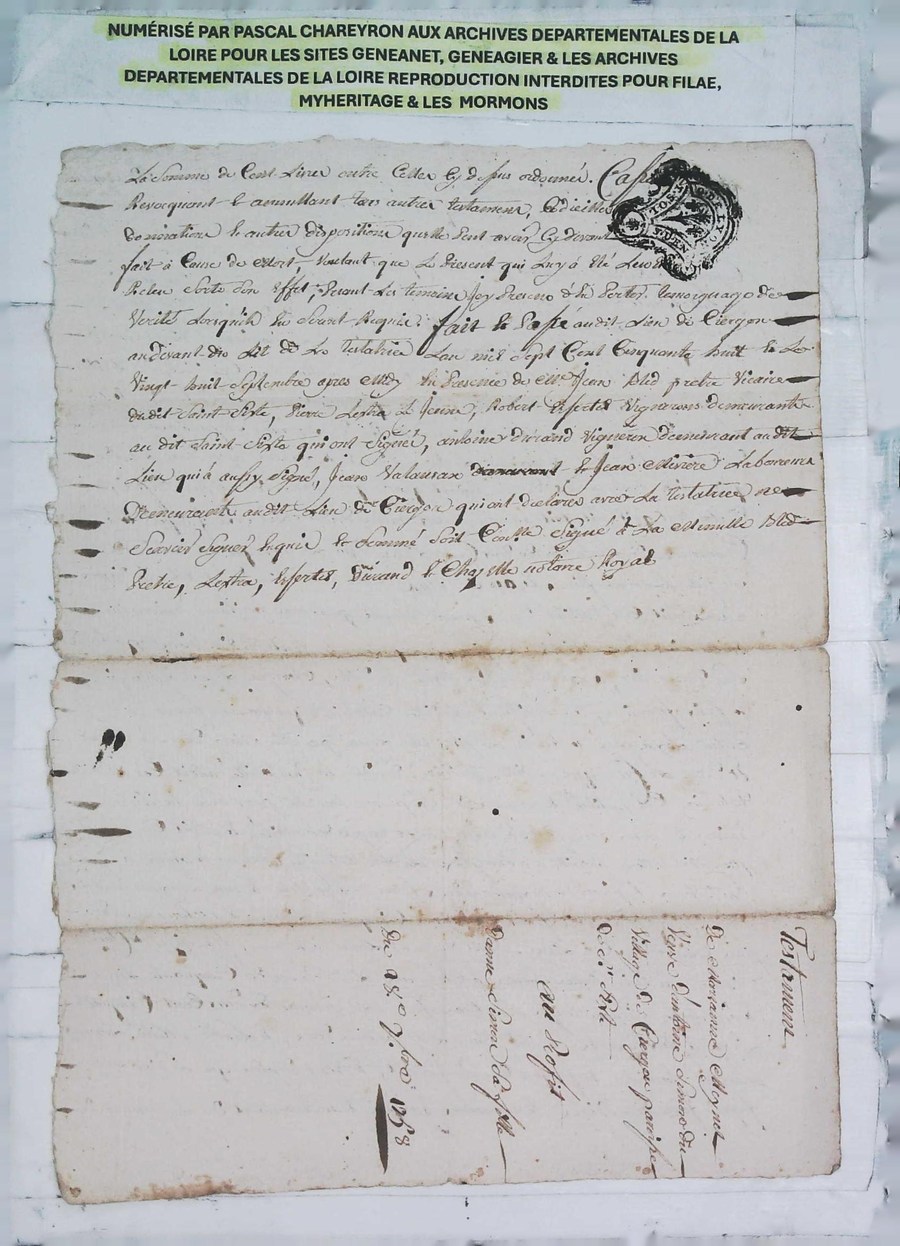 NUMÉRISÉ PAR PASCAL CHAREYRON AUX ARCHIVES DEPARTEMENTALES DE LA
LOIRE POUR LES SITES GENEANET, GENEAGIER & LES ARCHIVES
DEPARTEMENTALES DE LA LOIRE REPRODUCTION INTERDITES POUR FILAE,
MYHERITAGE & LES MORMONS
La Somme de Cent Livre outre Celles Cy dessus ordonnée. Cassant
Revocquant & annullant tous autres testament, Codicilles
donnations & autres dispositions quelle peut avoir Cy devant
fait à Cause de Mort, Voulant que Le present qui Luy à Eté Leu &
Releu Sorte Son Effet, priant Les temoins Icy présens d'En Porter temoignage de
Verité Lorsquils En Seront Requis. fait & Passé audit Lieu de Ciergon
audevant du de La testatrice Lan mil Sept Cent Cinquante huit & Le
Vingt-huit Septembre apres Midy En Presence de Mre Jean Bled pretre Vicaire
dudit Saint Sixte, Pierre Lextra Le Jeune, Robert Essertel Vignerons demeurants
au dit Saint Sixte qui ont Signé, antoine Durand Vigneron demeurant audit
Lieu qui à aussy Signé, Jean Valansan & Jean Laboureurs
Demeurants audit Lieu de Ciergon qui ont declarés avec La testatrice ne
Scavoir Signer Enquis & Sommé Sont Comme Signé à La Minutte Bled
Pretre, Lextra, Essertel, Durand & notaire Royal
Testament
De Marianne Moynet
Veuve Dantoine Simon du
Village de Ciergon paroisse
de
au Profit
Danne Simon Sa fille
Du 28e 7bre 1758